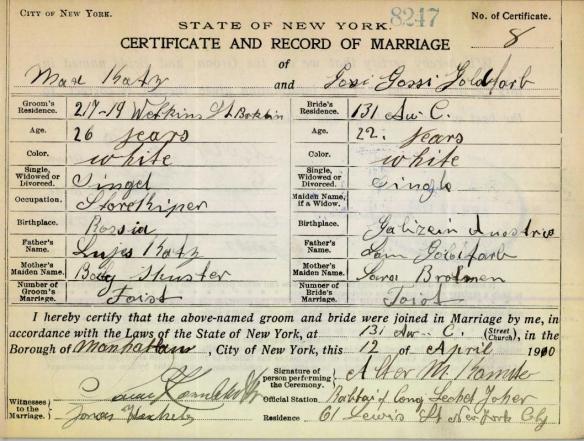 CITY OF NEW YORK.
8247
No. of Certificate.
STATE OF NEW YORK.
8
CERTIFICATE AND RECORD OF MARRIAGE
of
Max Katz and Gossi Goldfarb
Groom's Residence. 217-19 Watkins St. Bride's Residence. 131 Aw. C.
Age. 26 years Age. 22. Years
Color. white Color. white
Single, Widowed or Divorced. Singel Single, Widowed or Divorced. Single
Occupation. Storekiper Maiden Name, if a Widow.
Birthplace. Rossia Birthplace. Galizein Austria
Father's Name. Katz Father's Name. Sam Goldfarb
Mother's Maiden Name. Shuster Mother's Maiden Name. Sara
Number of Groom's Marriage. Foist Number of Bride's Marriage. Foist
I hereby certify that the above-named groom and bride were joined in Marriage by me, in
accordance with the Laws of the State of New York, at 131 Aw. C. (Street Church), in the
Borough of Manhattan, City of New York, this 12 of April 1910
Signature of person performing the Ceremony. Alter M.
Witnesses to the Marriage.
Official Station Rabbi of Cong
Residence 61 Lewis St New York City